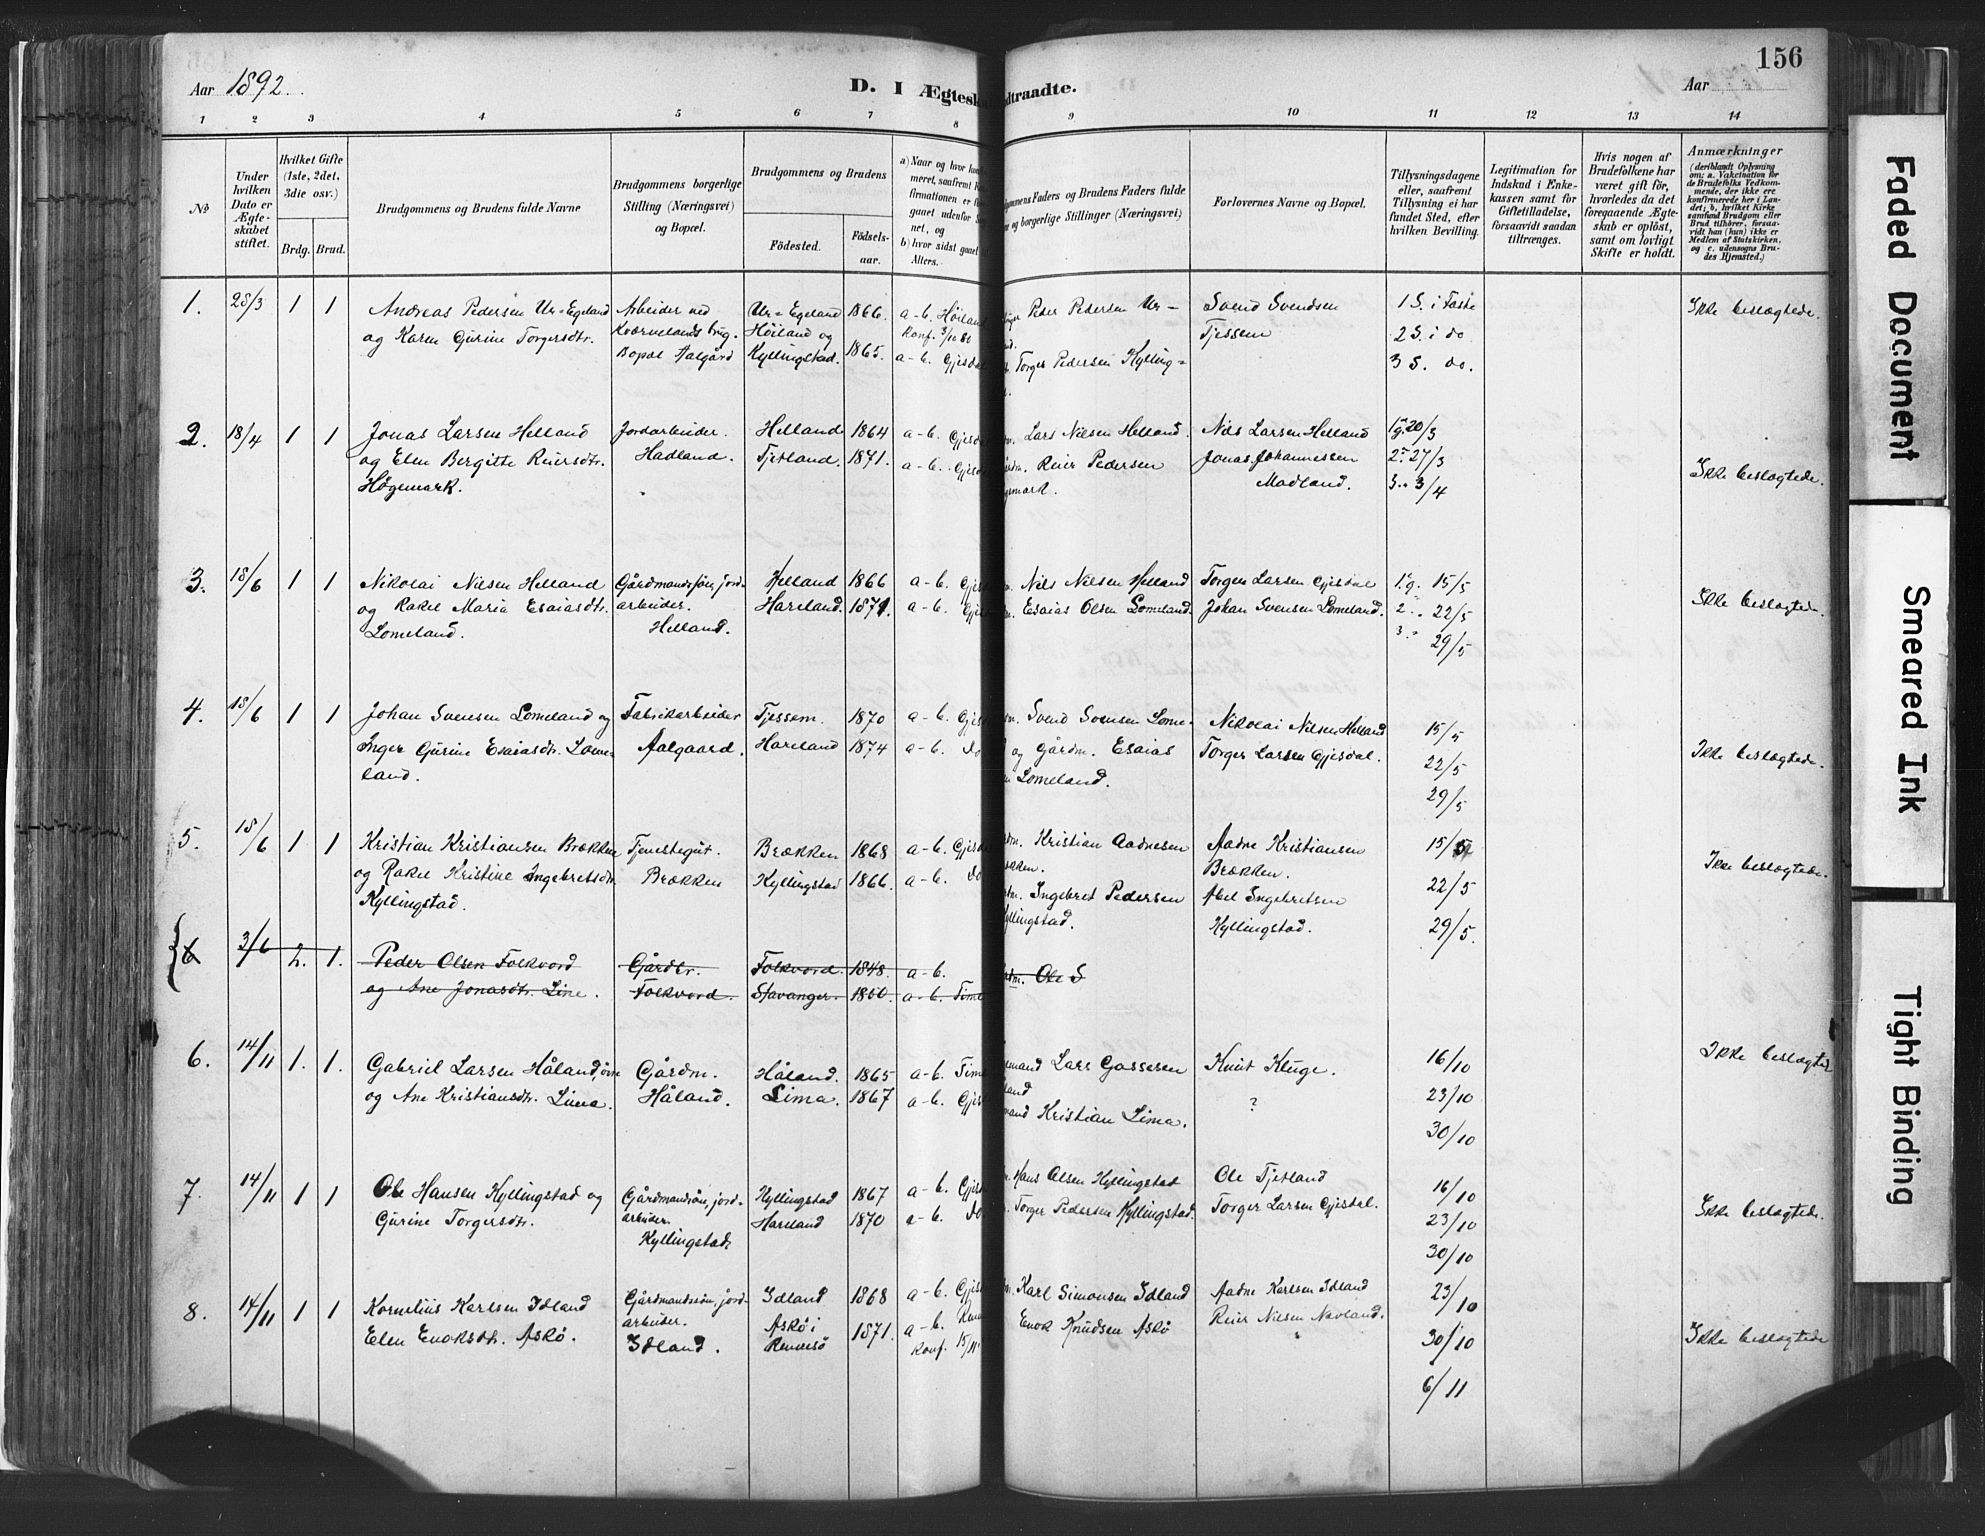 156
Aar 1892.
D. I Ægteska
dtraadte.
Aar
1 2 3 4 5 6 7 8 9 10 11 12 13 14
No
Under hvilken Dato er Ægteskabet stiftet.
Hvilket Gifte (1ste, 2det, 3die osv.)
Brdg. Brud.
Brudgommens og Brudens fulde Navne
Brudgommens borgerlige Stilling (Næringsvei) og Bopæl.
Brudgommens og Brudens
Fødested.
Fødselsaar.
a) Naar og hvor konfi
meret, saafremt K
firmationen er for
gaaet udenfor Sog
net, og
b) hvor sidst gaaet
Alters.
gommens Faders og Brudens Faders fulde
e og borgerlige Stillinger (Næringsvei)
Forlovernes Navne og Bopæl.
Tillysningsdagene eller, saafremt Tillysning ei har fundet Sted, efter hvilken Bevilling.
Legitimation for Indskud i Enkekassen samt for Giftetilladelse, forsaavidt saadan tiltrænges.
Hvis nogen af Brudefolkene har været gift før, hvorledes da det foregaaende Ægteskab er opløst, samt om lovligt Skifte er holdt.
Anmærkninger
(deriblandt Oplysning om: a. Vakcination for de Brudefolks Vedkommende, der ikke ere konfirmerede her i Landet; b. hvilket Kirkesamfund Brudgom eller Brud tilhører, forsaavidt han (hun) ikke er Medlem af Statskirken, og c. udensogns Brudes Hjemsted.)
1. 28/3 1 1 Andreas Pedersen Ur=Egeland Arbeider ved Ur=Egeland 1866. a-b. Høiland Peder Pedersen Ur= Svend Svendsen 1 S. i Faste Ikke beslægtede.
og Karen Gurine Torgersdtr. Kværnelands brug. Høiland og Konf. 3/10 80 Tjessem 2 S. i do
Bopæl Aalgård Kyllingstad. 1865. a-b. Gjesdal Torger Pedersen Kylling= 3 S. do.
2. 18/4 1 1 Jonas Larsen Helland Jordarbeider. Helland 1864 a-b. Gjesdal Lars Nilsen Helland. Nils Larsen Helland 1g. 20/3
og Elen Bergitte Reiersdtr. Hadland. Tjetland. 1871. a-b. Gjesd Reier Pedersen Jonas Johannessen 2" 27/3 Ikke beslægtede.
Høgemark. gemark. Madland. 3." 3/4
3. 18/6 1 1 Nikolai Nilsen Helland Gårdmandssøn, jord- Helland 1866 a-b. Gjesd Nils Nilsen Helland Torger Larsen Gjesdal 1.g. 15/5
og Rakel Maria Esaiasdtr. arbeider. Hareland. 1871. a-b. Gjesd Esaias Olsen Lomeland. Johan Svensen Lomeland. 2. " 22/5 Ikke beslægtede.
Lomeland. Helland. 3. " 29/5
4. 18/6 1 1 Johan Svensen Lomeland og Fabrikarbeider Tjessem. 1870 a-b. Gjesd Svend Svensen Lome- Nikolai Nilsen Helland 15/5
Inger Gurine Esaiasdtr. Lome- Aalgaard. Hareland 1874 a-b. do og gårdm. Esaias Torger Larsen Gjesdal. 22/5 Ikke beslægtede.
land. Lomeland. 29/5
5. 18/6 1 1 Kristian Kristiansen Brækken Tjenestegut. Brækken 1868 a-b. Gjesd Kristian Aadnesen Aadne Kristiansen 15/5
og Rakel Kristine Ingebretsdtr. Brækken Kyllingstad 1866. a-b. do ækken. Brækken. 22/5 Ikke beslægtede.
Kyllingstad. Ingebret Pedersen Abel Ingebretsen
yllingstad. Kyllingstad. 29/5.
6 3/6 2. 1. Peder Olsen Folkvord Gårdbr. Folkvord. 1848. a-b. Ole S
og Ane Jonasdtr. Line. Folkvord. Stavanger. 1850. a-b. Time
6. 14/11 1. 1. Gabriel Larsen Håland, øvre Gårdm. Håland. 1865 a-b. Time mand Lars Gassesen Knut Kluge. 16/10 Ikke beslægted
og Ane Kristiansdtr. Lima. Håland. Lima. 1867 a-b. Gjesd land ? 23/10
mand Kristian Lima. 30/10
7. 14/11 1 1 Ole Hansen Kyllingstad og Gårdmandssøn, jord- Kyllingstad 1867 a-b. Gjesd Hans Olsen Kyllingstad Ole Tjetland 16/10
Gurine Torgersdtr. arbeider. Hareland 1870 a-b. do Torger Pedersen Kyllingstad. Torger Larsen Gjesdal. 23/10 Ikke beslægtede.
Kyllingstad. 30/10
8. 14/11 1 1 Kornelius Karlsen Idland Gårdmandssøn, jord- Idland 1868 a-b. Gjesd Karl Simonsen Idland Aadne Karlsen Idland 23/10
Elen Enoksdtr. Askø. arbeider. Askø i 1871. a-b. Renn Enok Knudsen Askø Reier Nilsen Navland. 30/10 Ikke beslægtede
Idland. Rennesø Konf. 15/11 " 6/11
Faded Document
Smeared Ink
Tight Binding